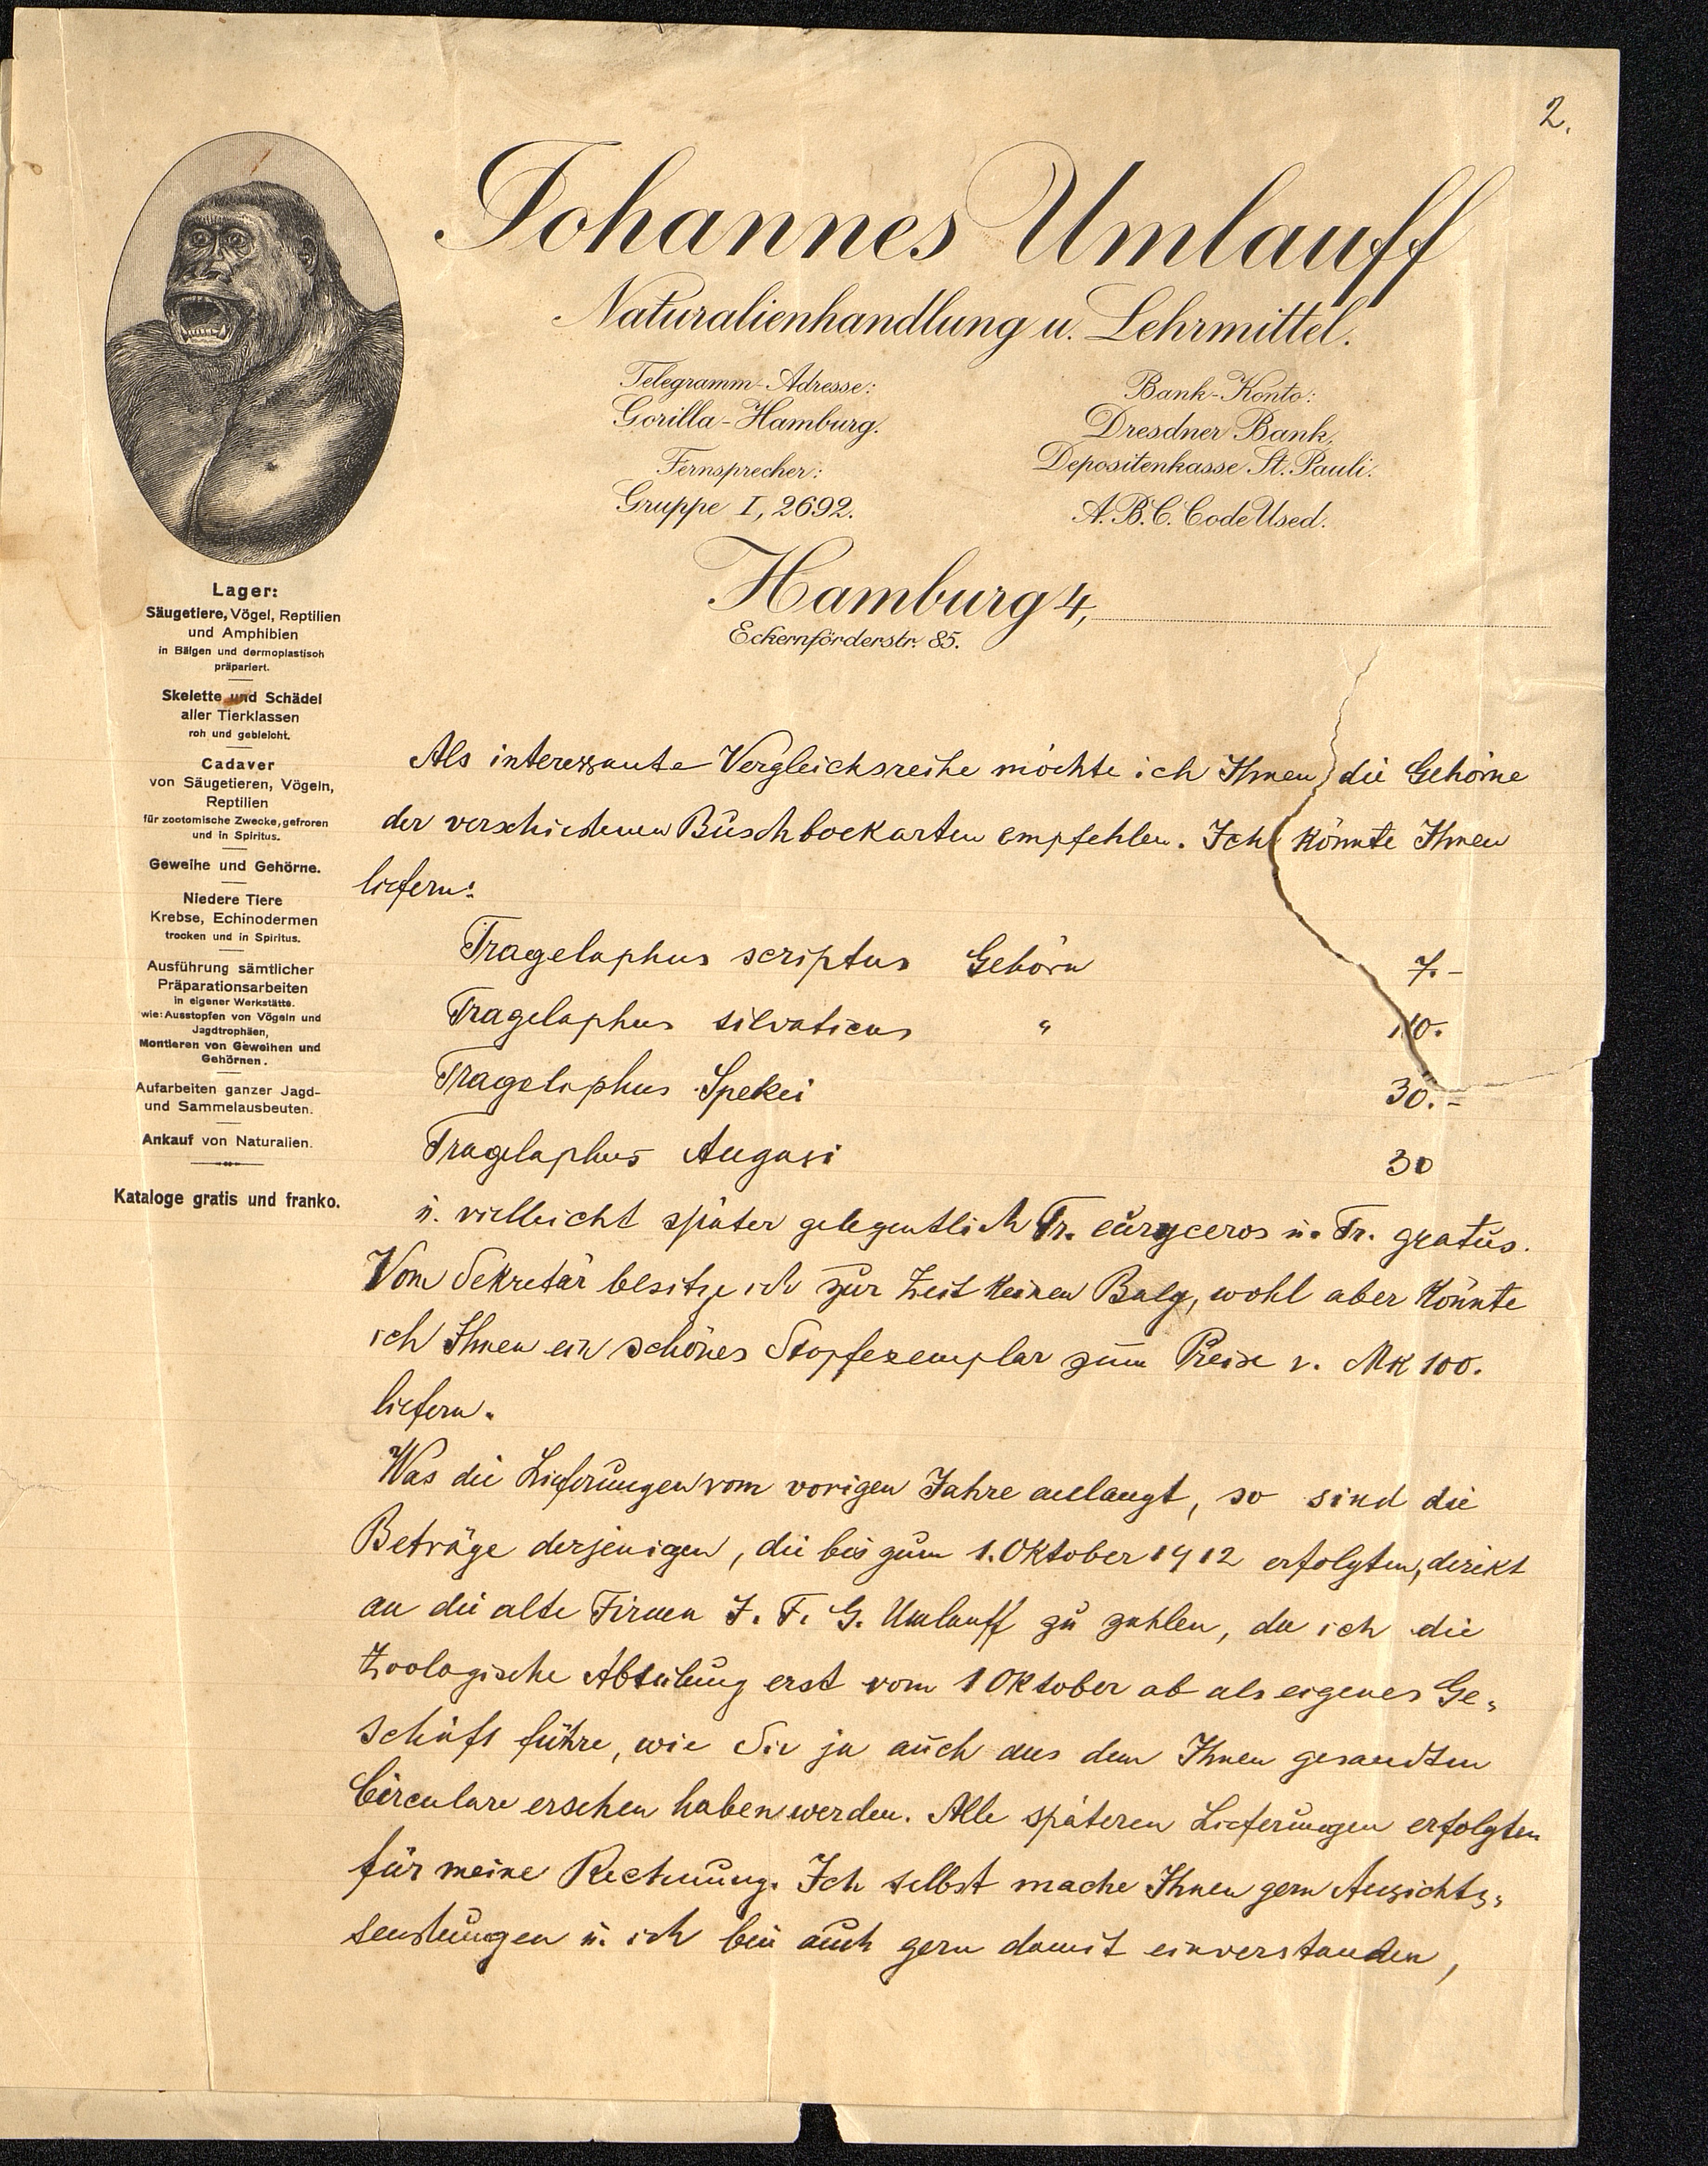 2.
Johannes Umlauff
Naturalienhandlung u. Lehrmittel.
Telegramm-Adresse:
Gorilla-Hamburg.
Fernsprecher:
Gruppe I, 2692.
Bank-Konto:
Dresdner Bank,
Depositenkasse St. Pauli.
A.B.C. Code Used.
Hamburg 4,
Eckernförderstr. 85.
Lager:
Säugetiere, Vögel, Reptilien
und Amphibien
in Bälgen und dermoplastisch
präpariert.
Skelette und Schädel
aller Tierklassen
roh und gebleicht.
Cadaver
von Säugetieren, Vögeln,
Reptilien
für zootomische Zwecke, gefroren
und in Spiritus.
Geweihe und Gehörne.
Niedere Tiere
Krebse, Echinodermen
trocken und in Spiritus.
Ausführung sämtlicher
Präparationsarbeiten
in eigener Werkstätte.
wie: Ausstopfen von Vögeln und
Jagdtrophäen,
Montieren von Geweihen und
Gehörnen.
Aufarbeiten ganzer Jagd-
und Sammelausbeuten.
Ankauf von Naturalien.
Kataloge gratis und franko.
Als interessante Vergleichsreihe möchte ich Ihnen die Gehörne
der verschiedenen Buschbockarten empfehlen. Ich könnte Ihnen
liefern:
Tragelaphus scriptus Gehörn 7.-
Tragelaphus silvaticus " 10.
Tragelaphus Spekei 30.-
Tragelaphus Angasi 30
u. vielleicht später gelegentlich Tr. euryceros u. Tr. gratus.
Vom Sekretär besitze ich zur Zeit keinen Balg, wohl aber könnte
ich Ihnen ein schönes Stopfexemplar zum Preise v. Mk 100.
liefern.
Was die Lieferungen vom vorigen Jahre anlangt, so sind die
Beträge derjenigen, die bis zum 1. Oktober 1912 erfolgten, direkt
an die alte Firma J. F. G. Umlauff zu zahlen, da ich die
Zoologische Abteilung erst vom 1 Oktober ab als eigenes Ge-
schäft führe, wie Sie ja auch aus dem Ihnen gesandten
Circulare ersehen haben werden. Alle späteren Lieferungen erfolgten
für meine Rechnung. Ich selbst mache Ihnen gern Ansichts-
sendungen u. ich bin auch gern damit einverstanden,